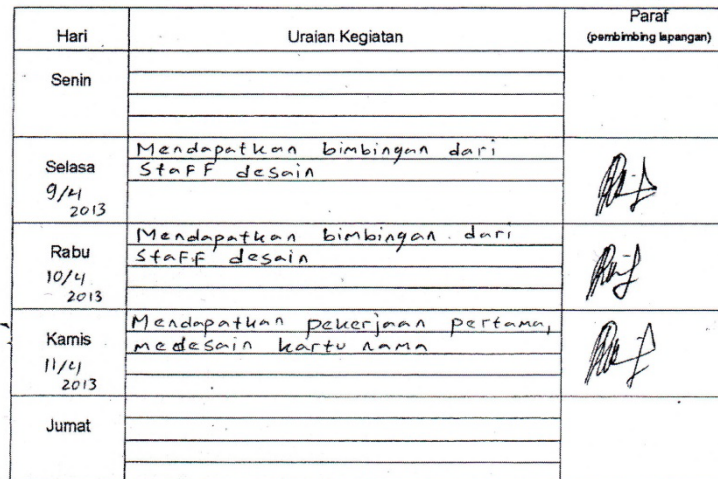 Hari Uraian Kegiatan Paraf
(pembimbing lapangan)
Senin
Selasa
9/4
2013
Mendapatkan bimbingan dari
Staff desain
Rabu
10/4
2013
Mendapatkan bimbingan dari
Staff desain
Kamis
11/4
2013
Mendapatkan pekerjaan pertama,
medesain kartu nama
Jumat